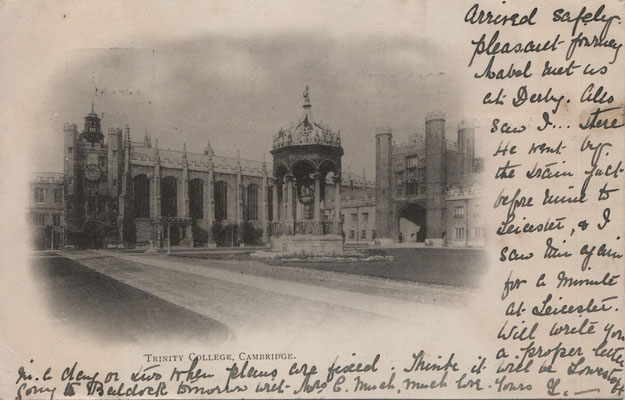 Arrived safely.
pleasant journey
Mabel met us
at Derby. Also
saw J... there
He went by
the train just
before mine to
Leicester, & I
saw him again
for a minute
at Leicester.
Will write you
a proper letter
TRINITY COLLEGE, CAMBRIDGE.
in a day or two when plans are fixed. Think it will be Lowestoft
going to Baldock tomorrow with Mrs C. Much, much love. Yours